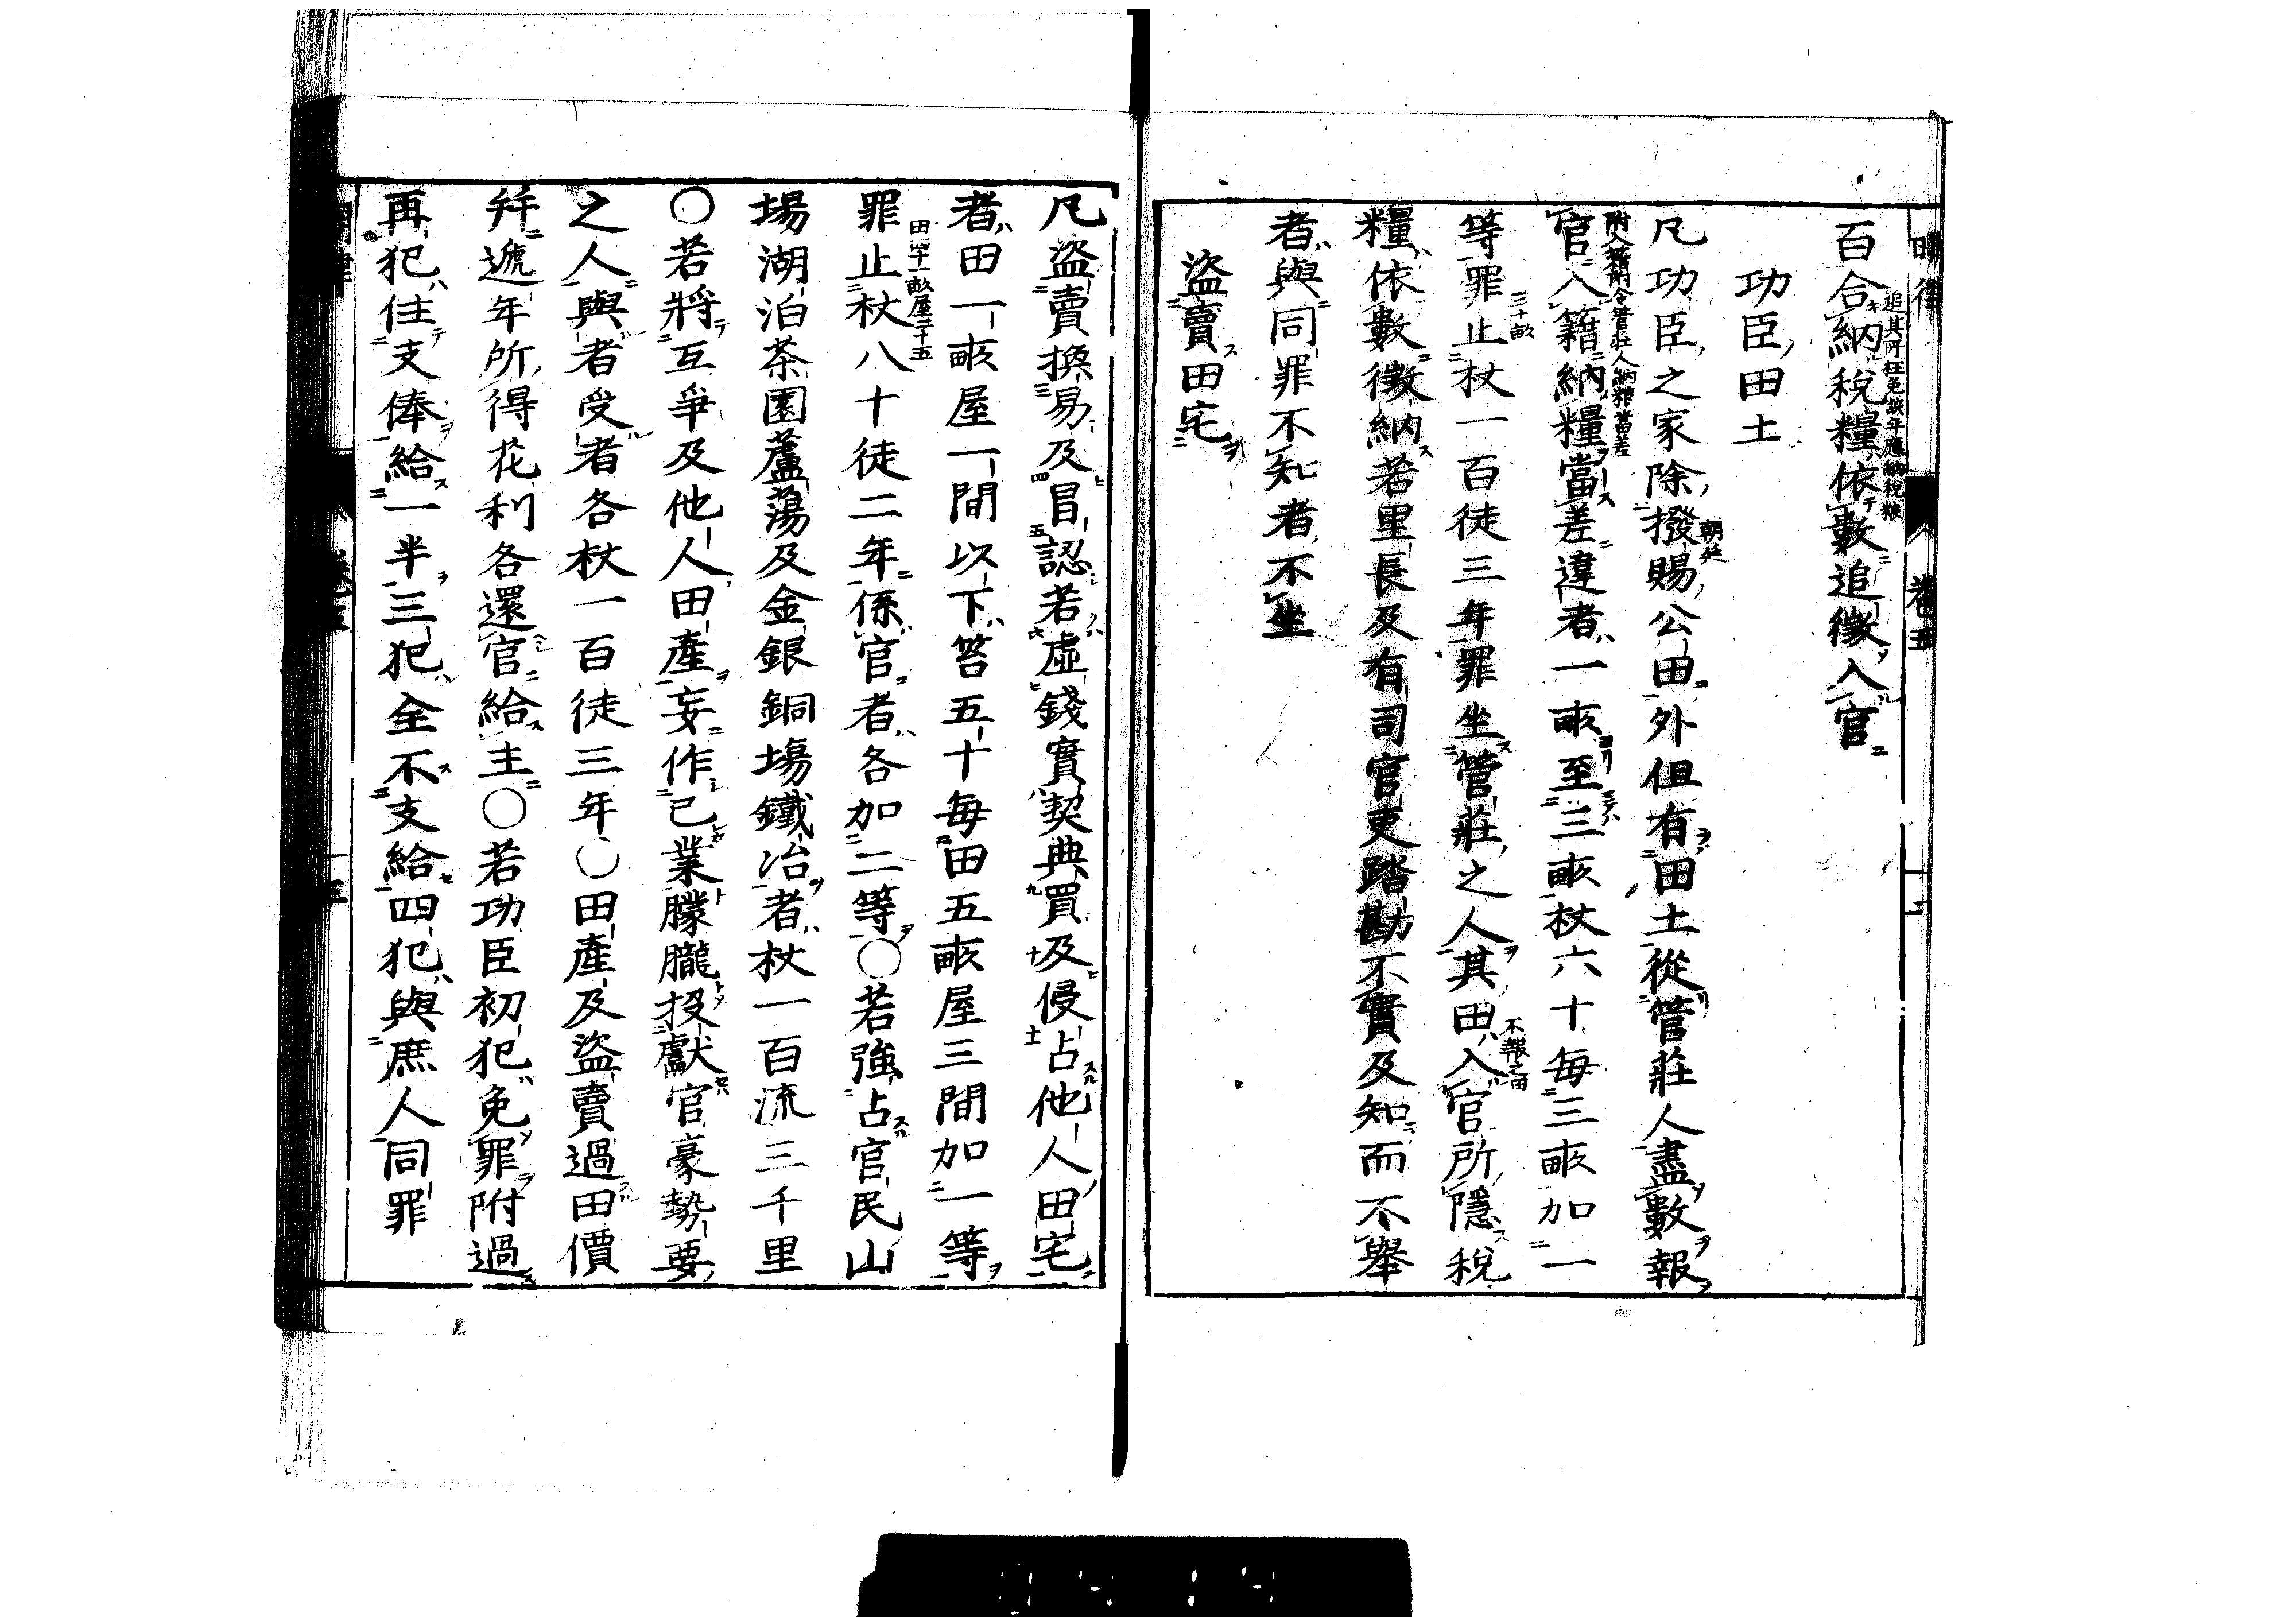 百合納稅糧依數追徵入官
功臣田土
凡功臣之家除撥賜公田外但有田土從管莊人盡數報
官入籍納糧當差違者一畝至三畝杖六十每三畝加一
等罪止杖一百徒三年罪坐管莊之人其田入官所隱稅
糧依數徵納若里長及有司官吏踏勘不實及知而不舉
者與同罪不知者不坐
盜賣田宅
凡盜賣換易及冒認若虛錢實契典買及侵占他人田宅
者田一畝屋一間以下笞五十每田五畝屋三間加一等
罪止杖八十徒二年係官者各加二等○若強占官民山
場湖泊茶園蘆蕩及金銀銅場鐵冶者杖一百流三千里
○若將互爭及他人田產妄作己業朦朧投獻官豪勢要
之人與者受者各杖一百徒三年○田產及盜賣過田價
幷遞年所得花利各還官給主○若功臣初犯免罪附過
再犯住支俸給一半三犯全不支給四犯與庶人同罪
明律
卷五
朝廷
三十畝
不報之田